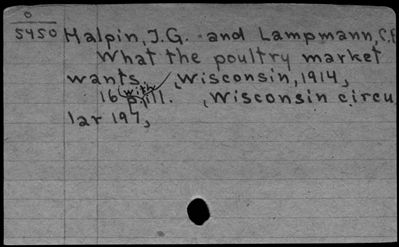 0
5450 Halpin, J.G. and Lampmann, C.E
What the poultry market
wants. Wisconsin, 1914,
16 p. with ill. Wisconsin circu
lar 197,